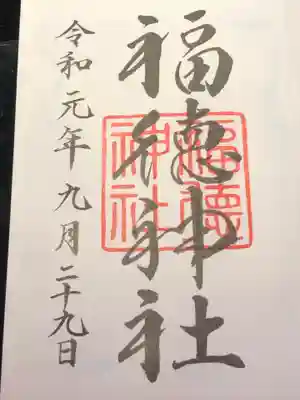 福徳神社
福徳神社
令和元年九月二十九日